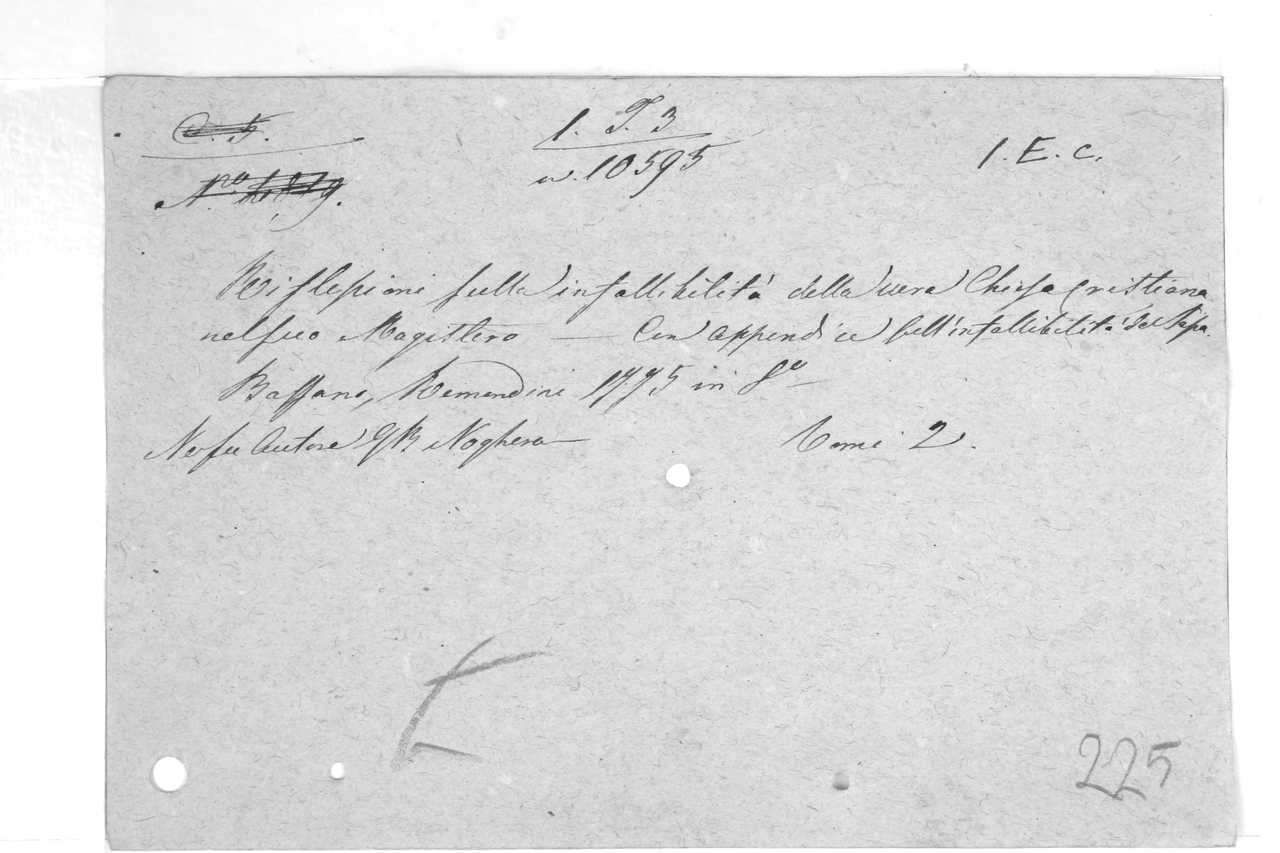 C. F.
1. T. 3
1. E. C.
n. 10595
Riflessioni sulla infallibilità della vera Chiesa Cristiana
nel suo Magistero — Con appendice sull'infallibilità del Papa.
Bassano, Remondini 1775 in 8º
Ne fu Autore GB Noghera
Tomi 2.
225